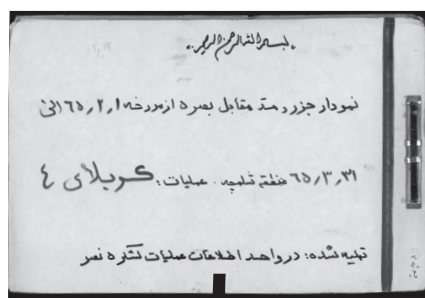 بسم الله الرحمن الرحیم
نمودار جزر و مد مقابل بصره از مورخه ۶۵٫۲٫۱ الی
۶۵٫۳٫۳۱ منطقه شلمچه - عملیات: کربلای ۴
تهیه شده: در واحد اطلاعات عملیات لشکر ه نصر